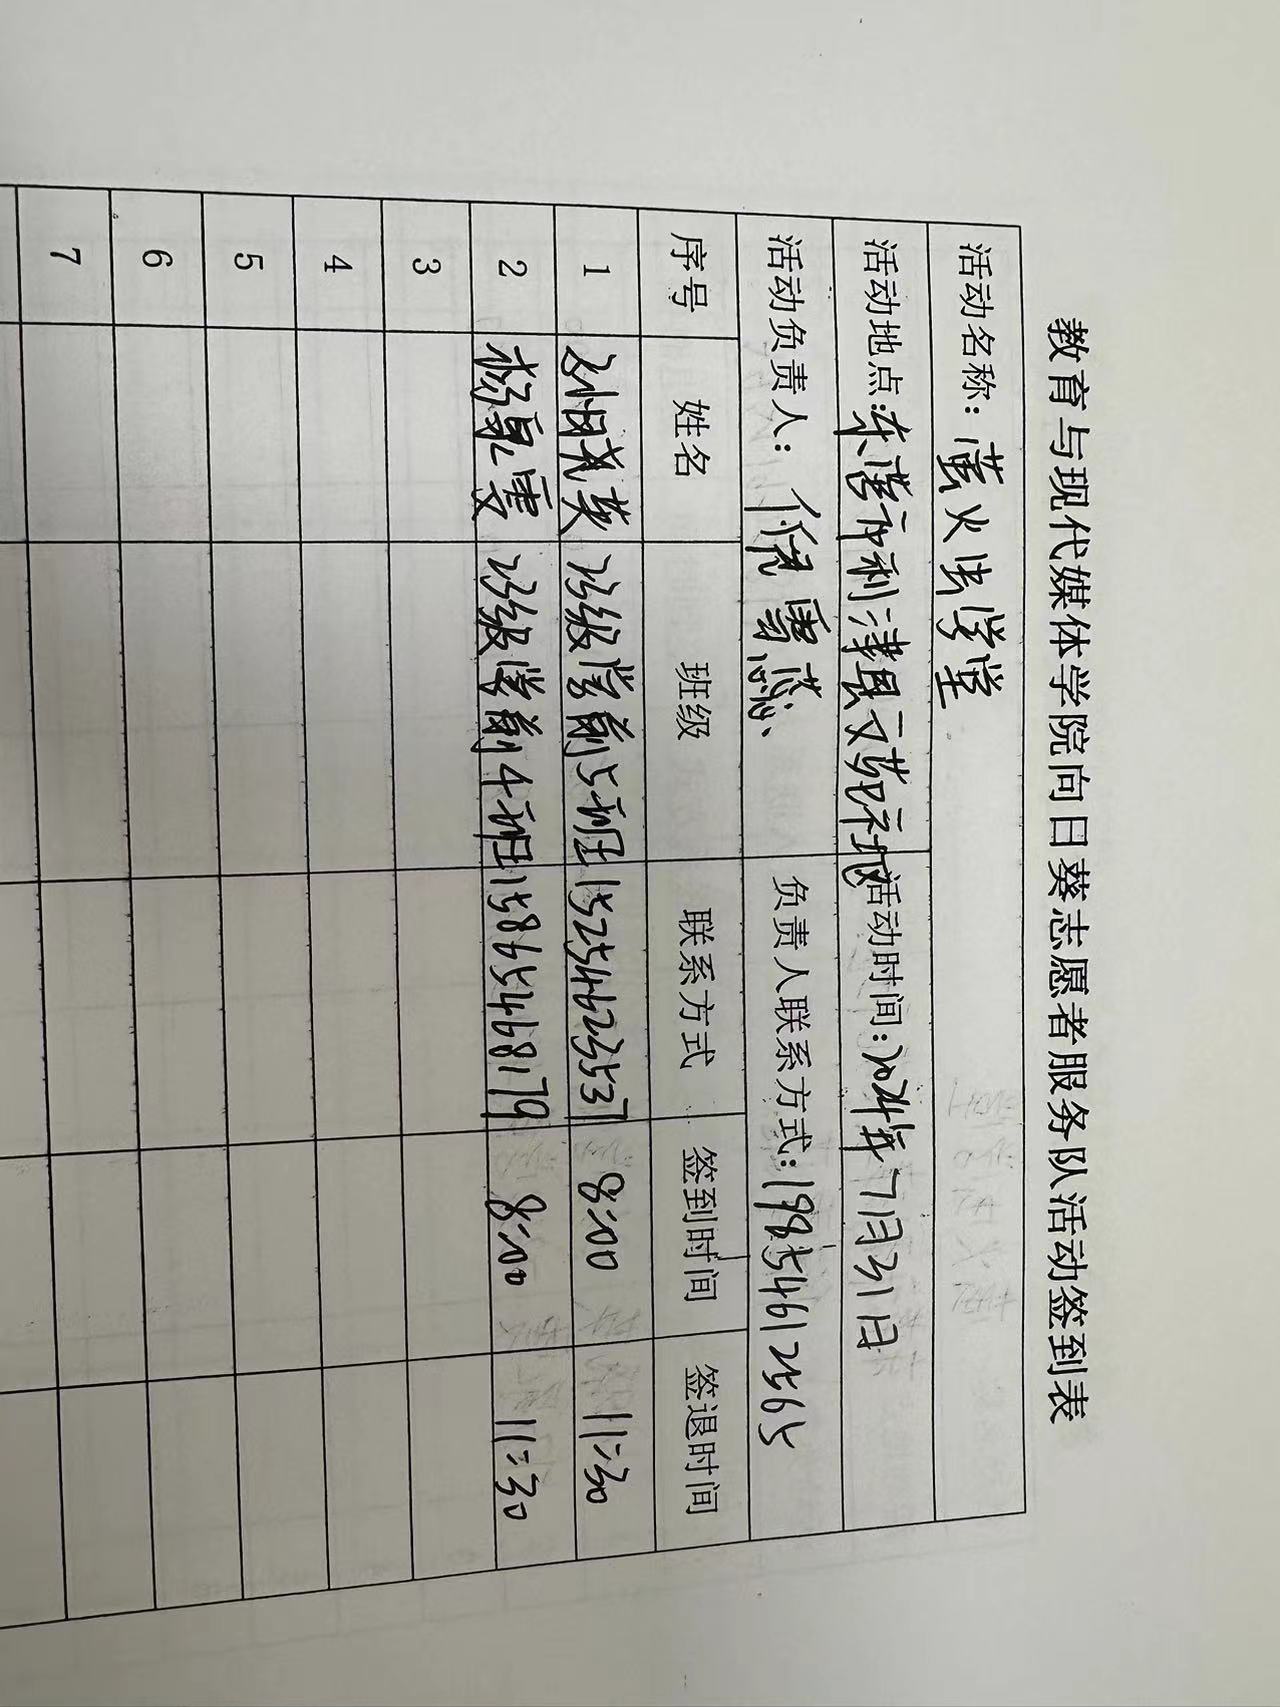 教育与现代媒体学院向日葵志愿者服务队活动签到表
活动名称：萤火虫学堂
活动地点：东营市利津县文苑社区 活动时间：2024年7月31日
活动负责人：倪雪蕊 负责人联系方式：19854612565
序号 姓名 班级 联系方式 签到时间 签退时间
1 英 23级学前5班 15254623537 8:00 11:30
2 杨泉雯 23级学前4班 15865468179 8:00 11:30
3
4
5
6
7